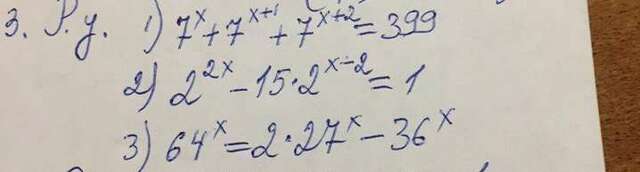 3. Р.у. 1) 7^x + 7^(x+1) + 7^(x+2) = 399
2) 2^(2x) - 15·2^(x-2) = 1
3) 64^x = 2·27^x - 36^x